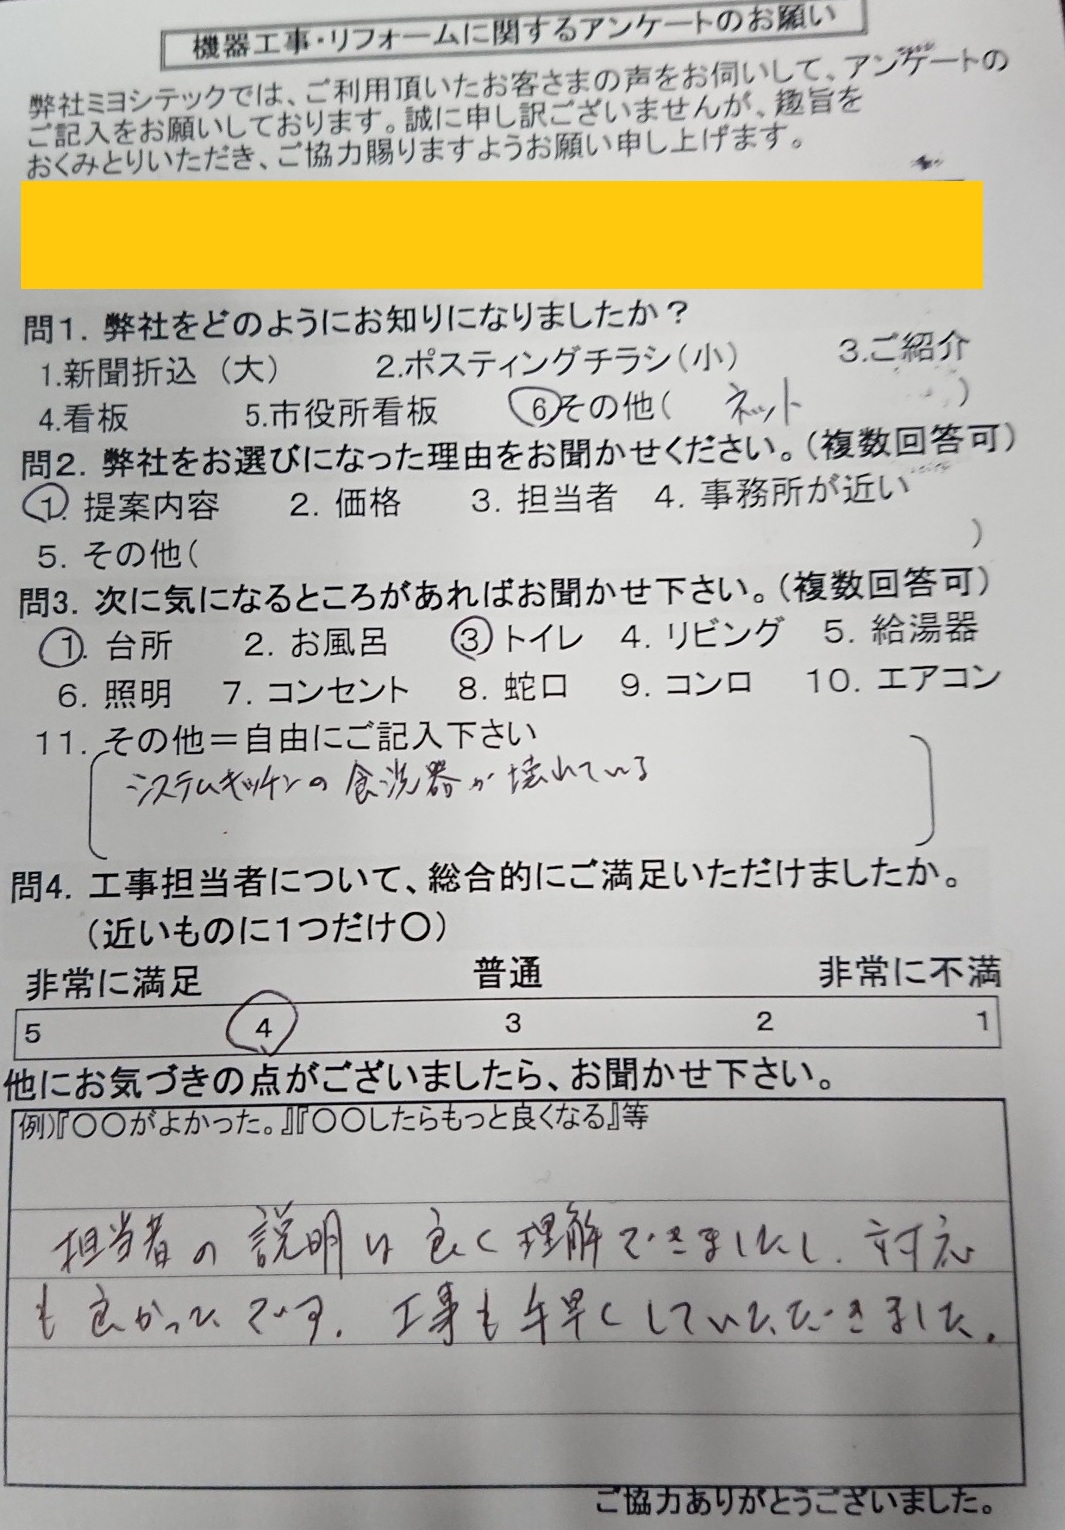 機器工事・リフォームに関するアンケートのお願い
弊社ミヨシテックでは、ご利用頂いたお客さまの声をお伺いして、アンケートの
ご記入をお願いしております。誠に申し訳ございませんが、趣旨を
おくみとりいただき、ご協力賜りますようお願い申し上げます。
問1. 弊社をどのようにお知りになりましたか？
1.新聞折込（大） 2.ポスティングチラシ（小） 3.ご紹介
4.看板 5.市役所看板 6その他( ネット )
問2. 弊社をお選びになった理由をお聞かせください。（複数回答可）
1. 提案内容 2. 価格 3. 担当者 4. 事務所が近い
5. その他( )
問3. 次に気になるところがあればお聞かせ下さい。（複数回答可）
1. 台所 2. お風呂 3 トイレ 4. リビング 5. 給湯器
6. 照明 7. コンセント 8. 蛇口 9. コンロ 10. エアコン
11. その他＝自由にご記入下さい
システムキッチンの食洗器が壊れている
問4. 工事担当者について、総合的にご満足いただけましたか。
（近いものに1つだけ〇）
非常に満足 普通 非常に不満
5 4 3 2 1
他にお気づきの点がございましたら、お聞かせ下さい。
例)『〇〇がよかった。』『〇〇したらもっと良くなる』等
担当者の説明は良く理解できましたし、対応
も良かったです。工事も手早くしていただきました。
ご協力ありがとうございました。